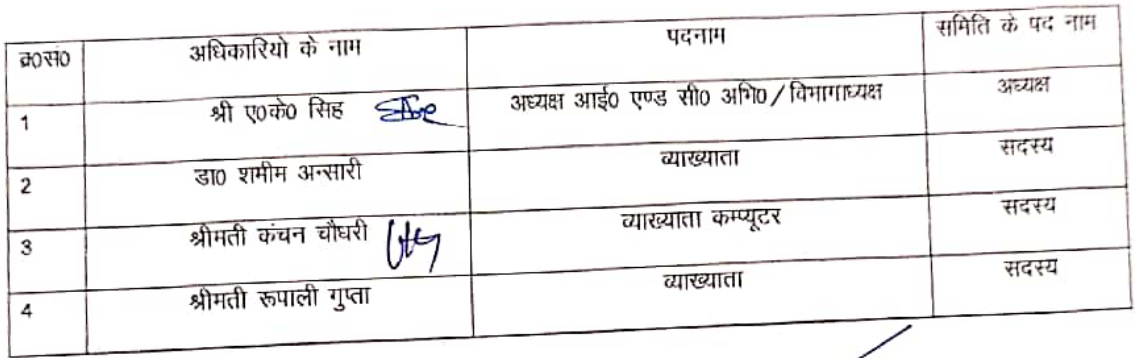 क्र०सं० अधिकारियो के नाम पदनाम समिति के पद नाम
1 श्री ए०के० सिह अध्यक्ष आई० एण्ड सी० अभि०/विभागाध्यक्ष अध्यक्ष
2 डा० शमीम अन्सारी व्याख्याता सदस्य
3 श्रीमती कंचन चौधरी व्याख्याता कम्प्यूटर सदस्य
4 श्रीमती रूपाली गुप्ता व्याख्याता सदस्य